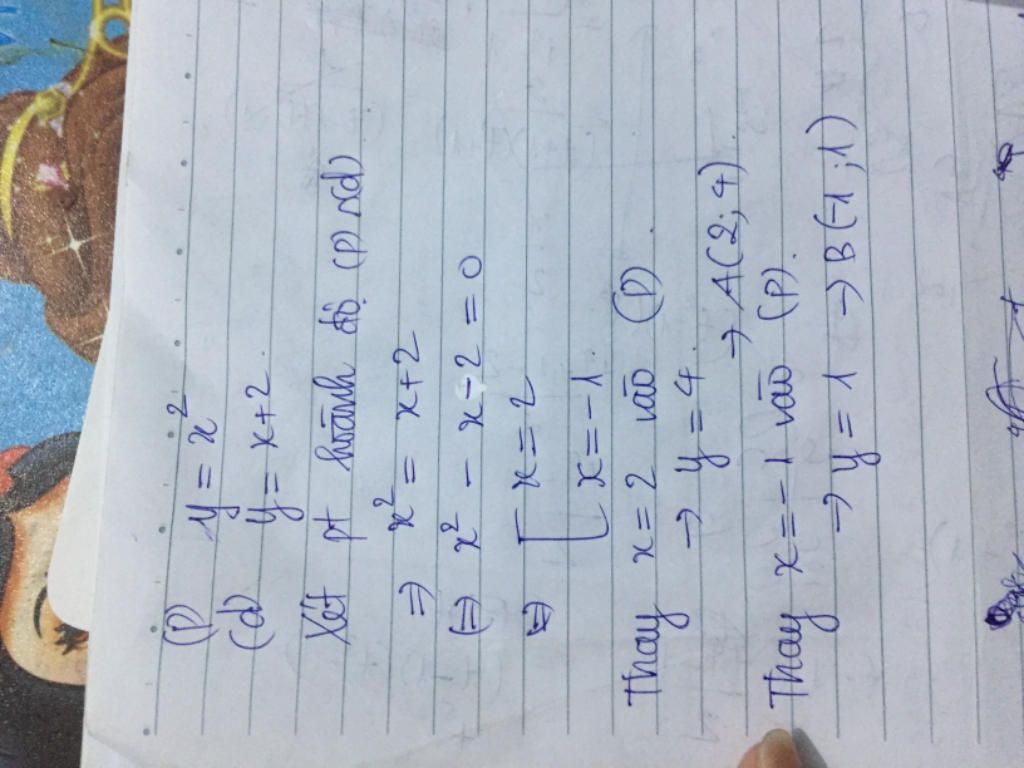 (P) y = x²
(d) y = x+2.
Xét pt hoành độ (P và d)
⇒ x² = x+2
⇔ x² - x - 2 = 0
⇔ [ x = 2
[ x = -1.
Thay x = 2 vào (P)
→ y = 4.
→ A(2;4)
Thay x = -1 vào (P).
→ y = 1 → B(-1;1)